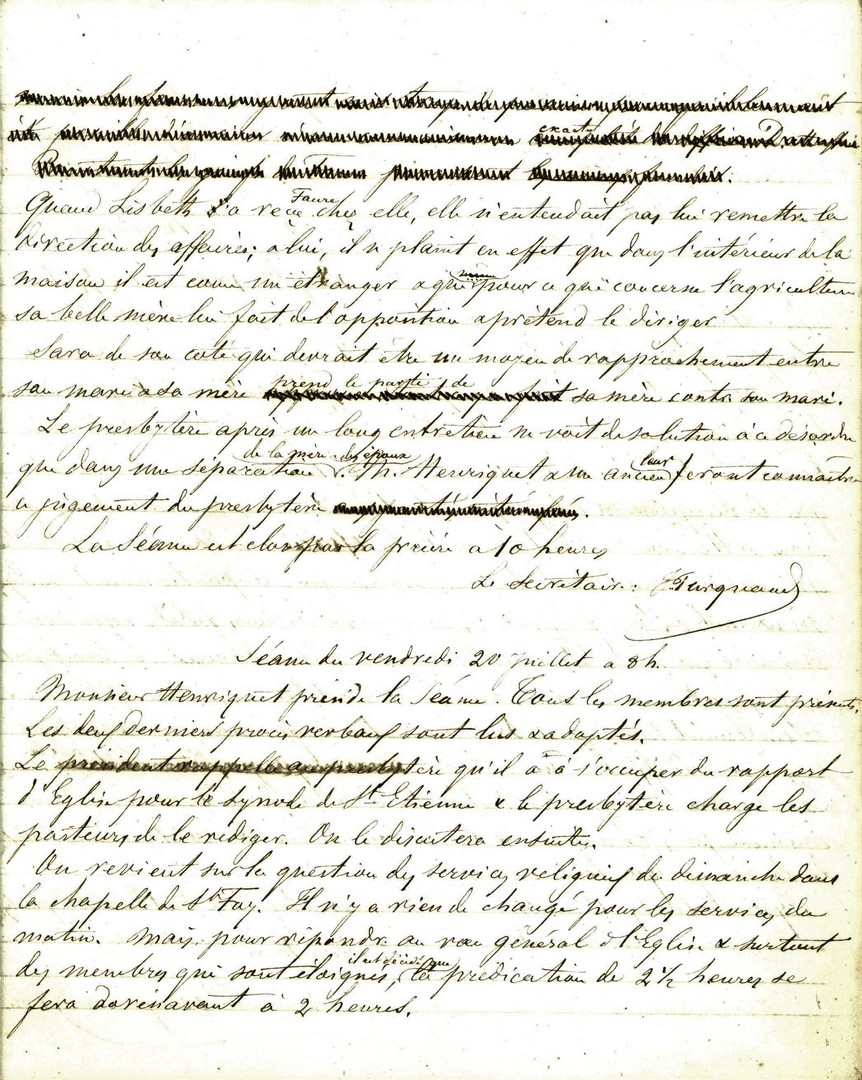 exacte
Quand Lisbeth a reçu Faure chez elle, elle n'entendait pas lui remettre la
direction des affaires; à lui, il se plaint en effet que dans l'intérieur de la
maison il est come un étranger & que même pour ce qui concerne l'agriculture
sa belle mère lui fait de l'opposition & prétend le diriger
Sara de son coté qui devrait être un moyen de rapprochement entre
son mari & sa mère prend le parti de sa mère contre son mari.
Le presbytère après un long entretien ne voit de solution à ce désordre
que dans une séparation de la mère des époux. Mr. Henriquet & un ancien leur feront connaître
ce jugement du presbytère
La Séance est close par la prière à 10 heures
Le secrétaire: Turquand
Séance du vendredi 20 Juillet à 8 h.
Monsieur Henriquet préside la Séance. Tous les membres sont présents.
Les deux derniers procès verbaux sont lus & adoptés.
Le président rappelle au presbytère qu'il a à s'occuper du rapport
d'Eglise pour le synode de St Etienne & le presbytère charge les
pasteurs de le rédiger. On le discutera ensuite.
On revient sur la question des services religieux du dimanche dans
la chapelle de Ste Foy. Il n'y a rien de changé pour les services du
matin. Mais pour répondre au vœu général de l'Eglise & surtout
des membres qui sont éloignés, il est décidé que la prédication de 2 1/2 heures se
fera dorénavant à 2 heures.